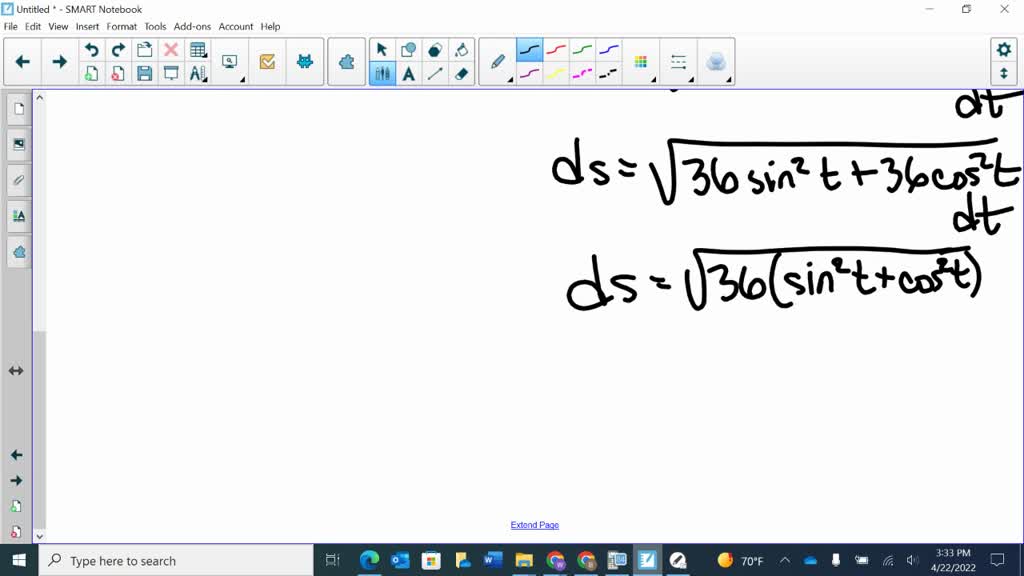 Untitled * - SMART Notebook
File Edit View Insert Format Tools Add-ons Account Help
dt
ds = √36 sin² t + 36 cos² t
dt
ds = √36 (sin² t + cos² t)
Extend Page
Type here to search
70°F
3:33 PM
4/22/2022